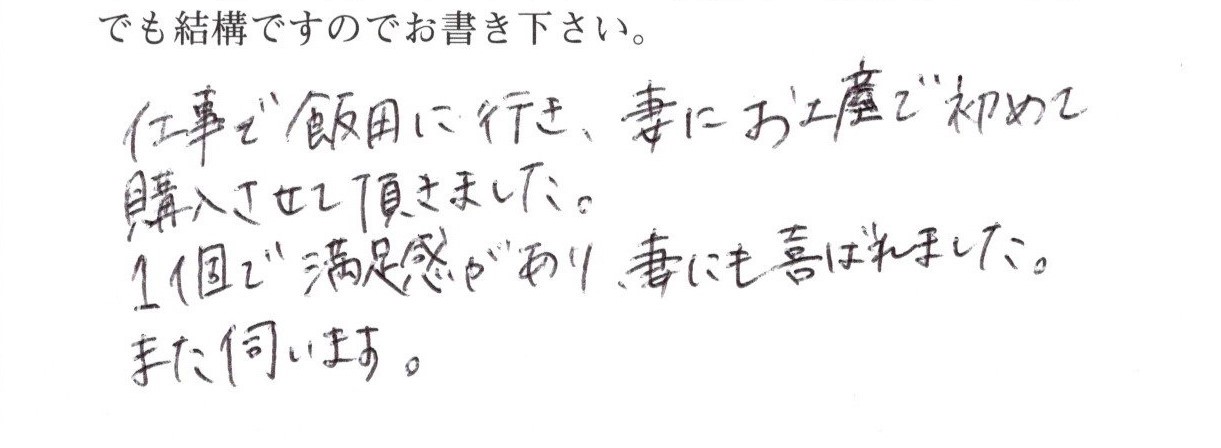 でも結構ですのでお書き下さい。
仕事で飯田に行き、妻にお土産で初めて
購入させて頂きました。
1個で満足感があり、妻にも喜ばれました。
また伺います。